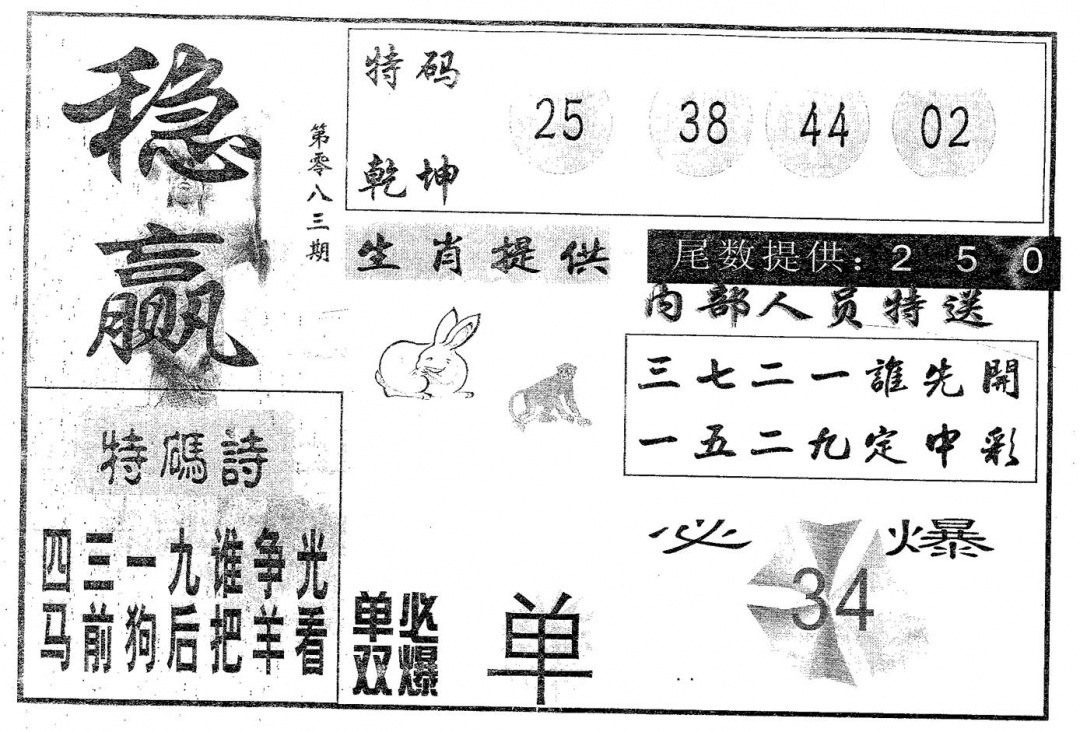 稳赢
第零八三期
特码
乾坤
25 38 44 02
生肖提供
尾数提供: 2 5 0
内部人员特送
三七二一誰先開
一五二九定中彩
特碼詩
四三一九谁争光
马前狗后把羊看
单双
必爆
单
必爆
34